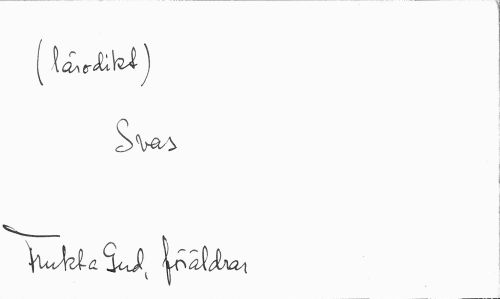 (lärodikt)
Svas
Frukta Gud, föräldrar